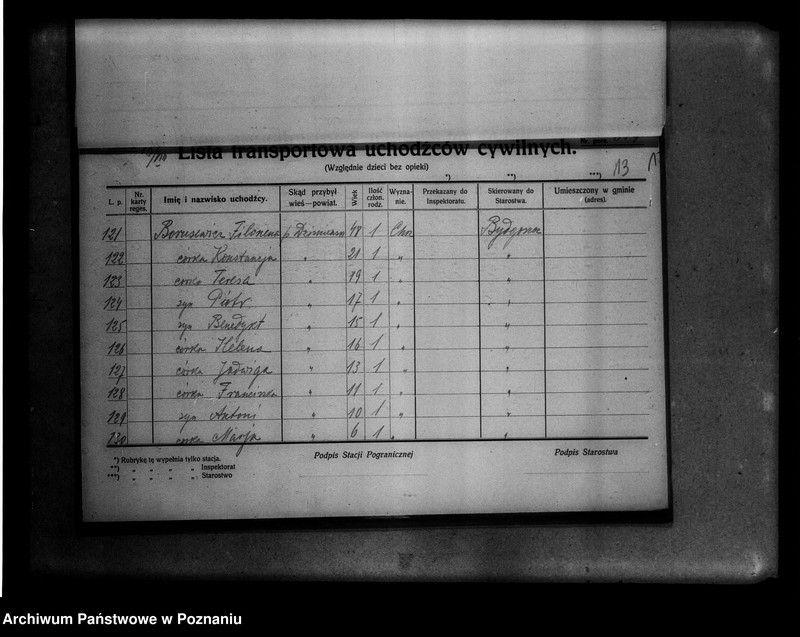 13
Lista transportowa uchodźców cywilnych.
(Względnie dzieci bez opieki)
*) **) ***)
L. p. Nr. karty reges. Imię i nazwisko uchodźcy. Skąd przybył wieś—powiat. Wiek Ilość człon. rodz. Wyzna-nie. Przekazany do Inspektoratu. Skierowany do Starostwa. Umieszczony w gminie (adres).
121 Borusewicz 48 1
122 córka Konstancja " 21 1 " "
123 córka Teresa " 19 1 " "
124 syn Piotr " 17 1 " "
125 syn Benedykt " 15 1 " "
126 córka Helena " 16 1 " "
127 córka Jadwiga " 13 1 " "
128 córka " 11 1 " "
129 syn Antoni " 10 1 " "
130 córka Marja " 6 1 " "
*) Rubrykę tę wypełnia tylko stacja.
**) " " " " Inspektorat
***) " " " " Starostwo
Podpis Stacji Pogranicznej
Podpis Starostwa
Archiwum Państwowe w Poznaniu